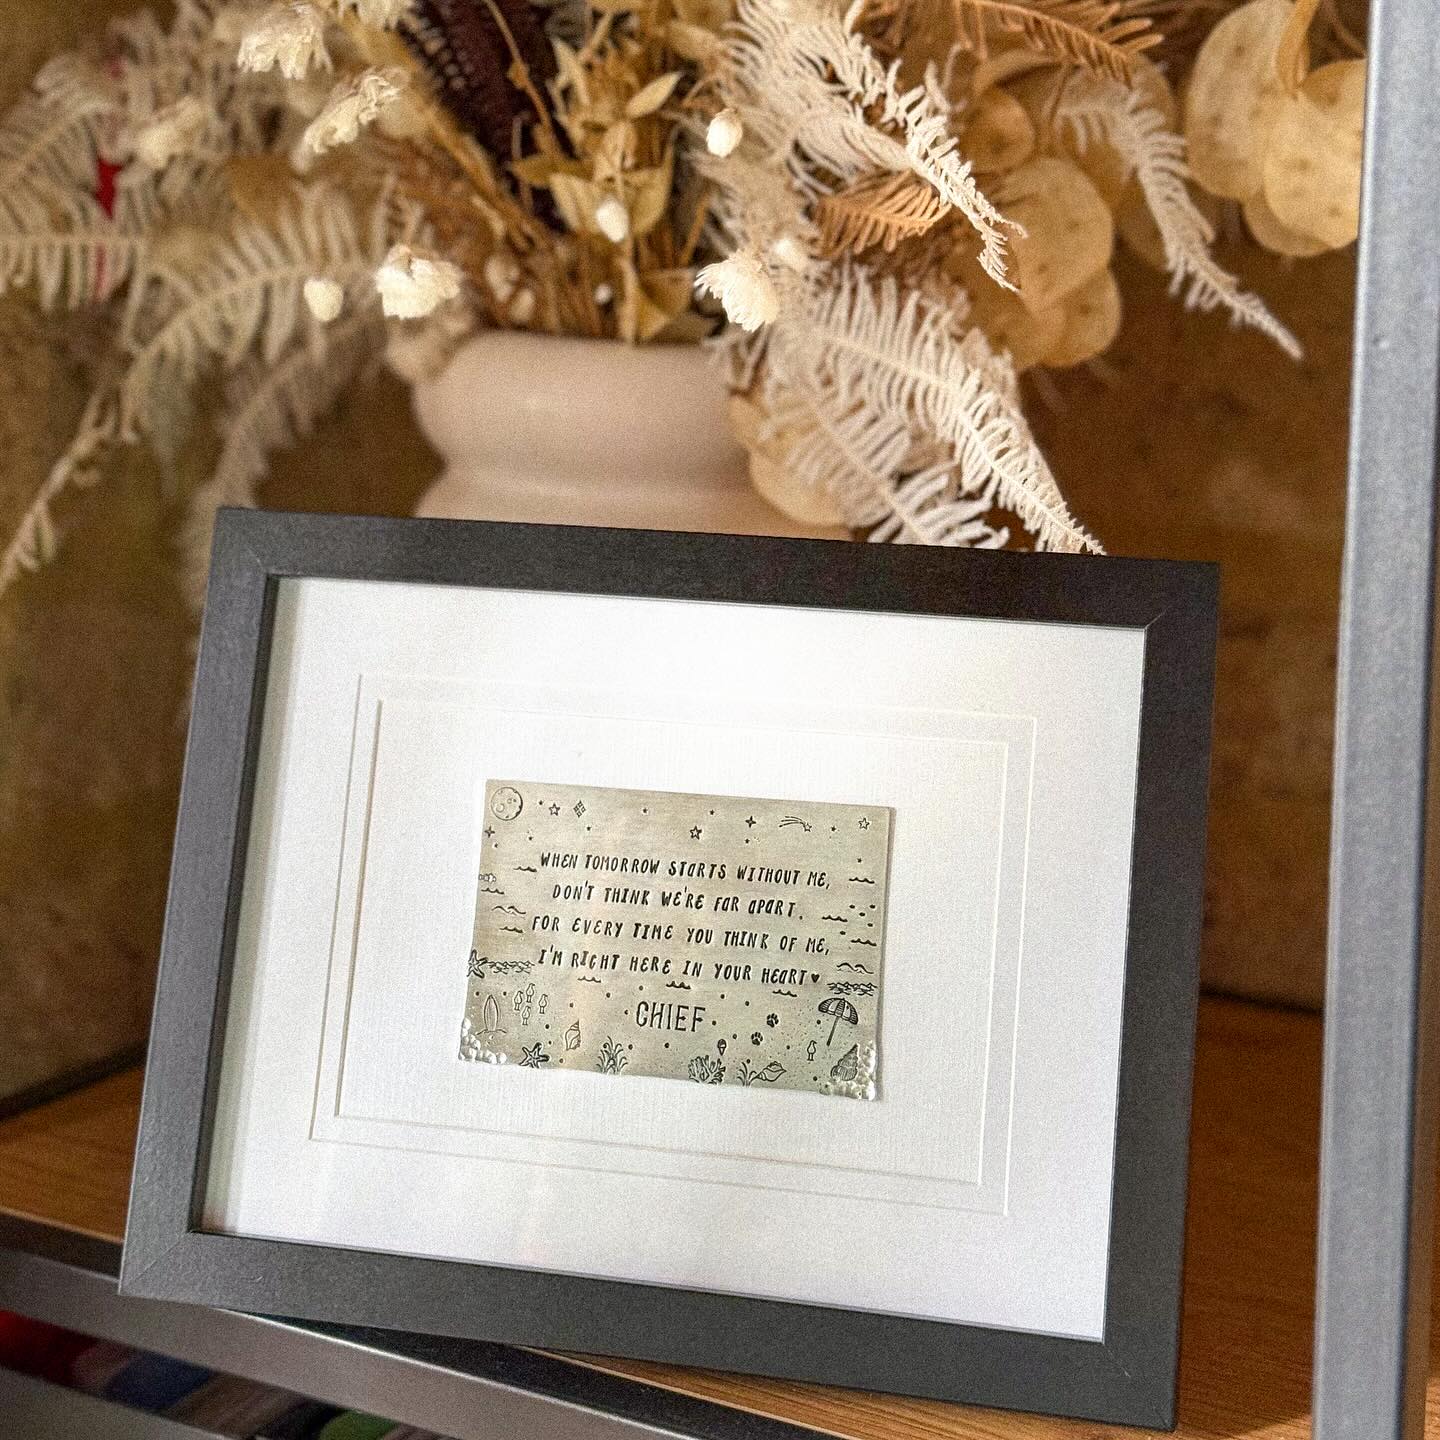 WHEN TOMORROW STARTS WITHOUT ME,
DON'T THINK WE'RE FAR APART.
FOR EVERY TIME YOU THINK OF ME,
I'M RIGHT HERE IN YOUR HEART♥
CHIEF